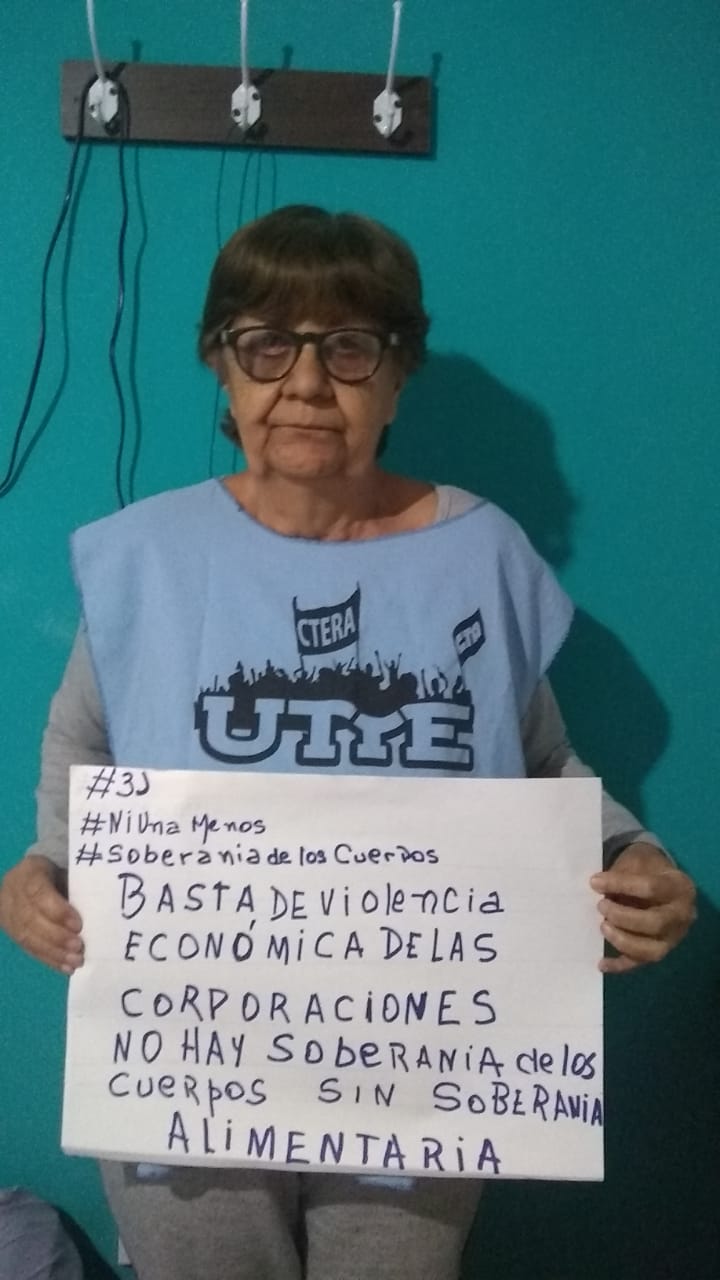 CTERA
CTA
UTTE
#3J
#Ni Una Menos
#Soberania de los Cuerpos
BASTA DE Violencia
ECONÓMICA DE LAS
CORPORACIONES
NO HAY SObeRANiA de los
CUERpos SIN SOBERANiA
ALiMENTARiA